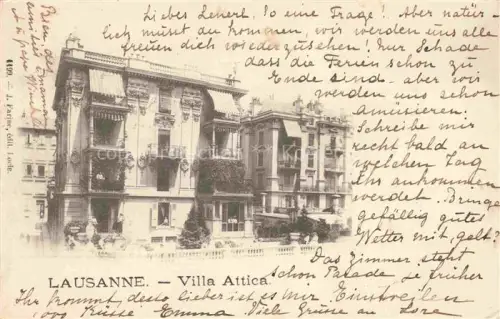 Liebes Lenerl. So eine Frage! Aber natür-
lich musst du kommen, wir werden uns alle
freuen dich wiederzusehen! Nur Schade
dass die Ferien schon zu
Ende sind - aber wir
werden uns schon
amüsieren.
Schreibe mir
recht bald an
welchen Tag
Ihr ankommen
werdet. Bringe
gefällig gutes
Wetter mit, gelt?
Das Zimmer steht
schon Parade, je früher
Ihr kommt, desto lieber ist es mir. Einstweilen
1000 Küsse Emma Viele Grüsse an
4499. - J. Farine, édit. Locle.
LAUSANNE. — Villa Attica.